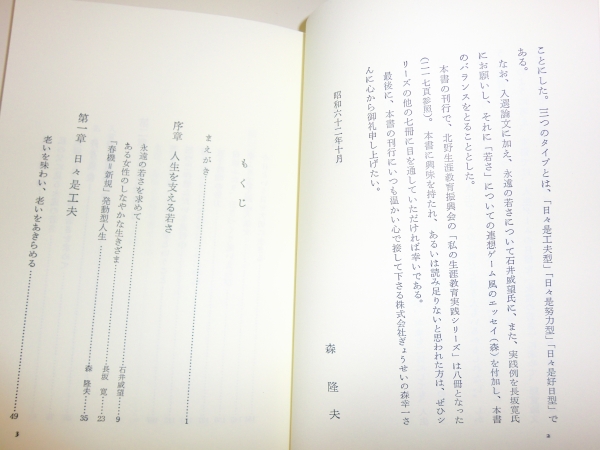 ことにした。三つのタイプとは、「日々是工夫型」「日々是努力型」「日々是好日型」で
ある。
なお、入選論文に加え、永遠の若さについて石井威望氏に、また、実践例を長坂寛氏
にお願いし、それに「若さ」についての連想ゲーム風のエッセイ(森)を付加し、本書
のバランスをとることとした。
本書の刊行で、北野生涯教育振興会の「私の生涯教育実践シリーズ」は八冊となった
(二一七頁参照)。本書に興味を持たれ、あるいは読み足りないと思われた方は、ぜひシ
リーズの他の七冊に目を通していただければ幸いである。
最後に、本書の刊行にいつも温かい心で接して下さる株式会社ぎょうせいの森幸一さ
んに心から御礼申し上げたい。
昭和六十二年十月
森 隆夫
2
もくじ
まえがき 1
序章 人生を支える若さ
永遠の若さを求めて 石井威望 9
ある女性のしなやかな生きざま 長坂 寛 23
「春機=新規」発動型人生 森 隆夫 35
第一章 日々是工夫
老いを味わい、老いをあきらめる 49
3